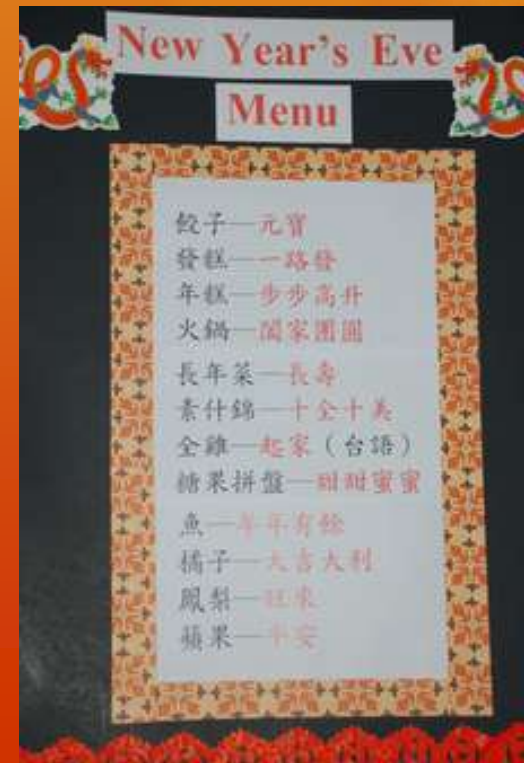 New Year's Eve
Menu
餃子—元寶
發糕—一路發
年糕—步步高升
火鍋—闔家團圓
長年菜—長壽
素什錦—十全十美
全雞—起家（台語）
糖果拼盤—甜甜蜜蜜
魚—年年有餘
橘子—大吉大利
鳳梨—旺來
蘋果—平安